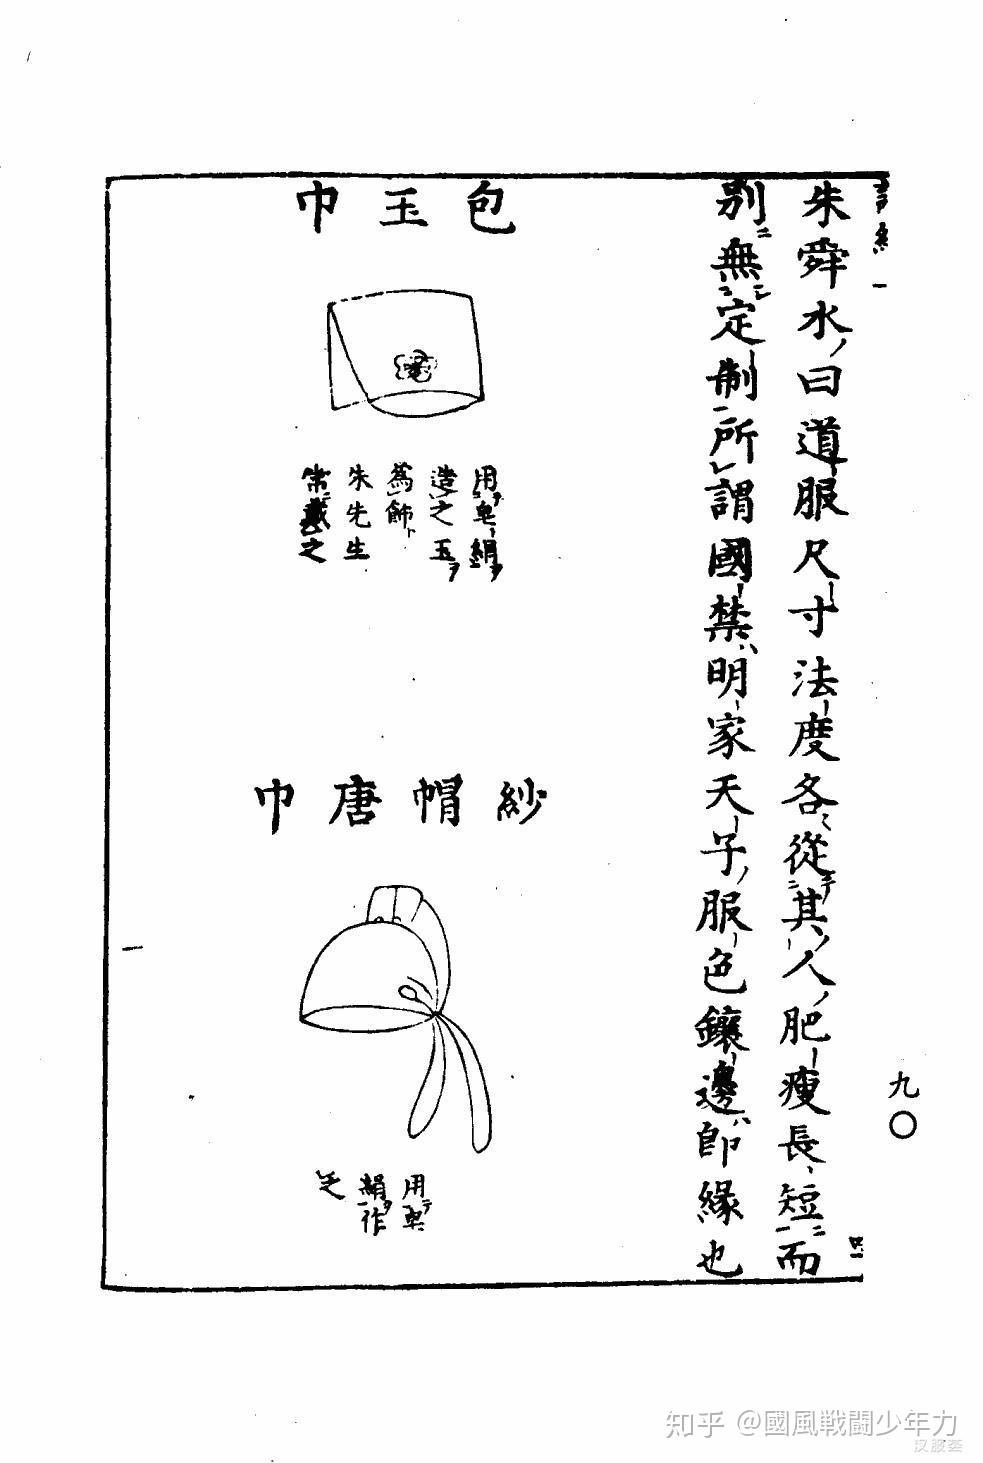 朱舜水曰道服尺寸法度各從其人肥瘦長短而
別無定制所謂國禁明家天子服色鑲邊即緣也
包玉巾
用皂絹
造之玉
為飾
朱先生
常戴之
紗帽唐巾
用皂
絹作
之
九〇
知乎 @國風戦闘少年力
汉服荟